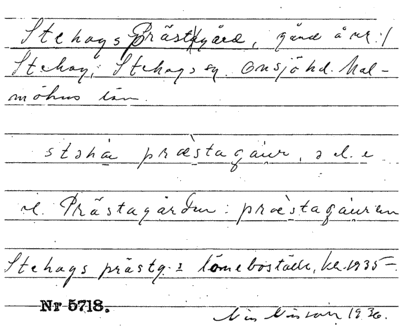 Stehags Prästgård, gård å nr 1
Stehag, Stehags sn. Onsjö hd. Mal-
möhus län.
stəha præstagaur, ə d. e
el. Prästagården: præstagauren
Stehags prästg.s löneboställe, kr. 1935-
Nr 5718.
Nils Nilsson 1936.